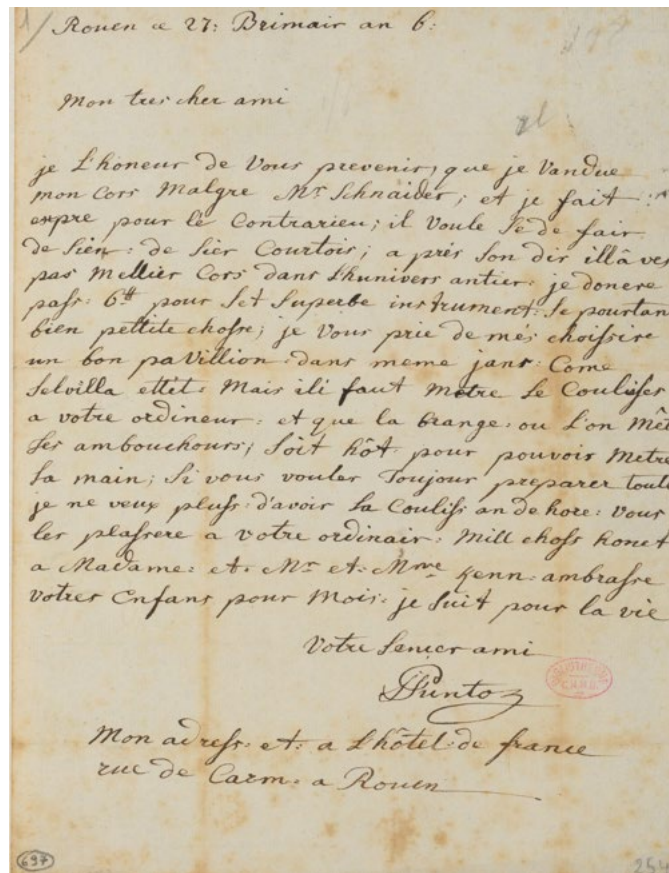 1/ Rouen ce 27: Brimair an 6:
Mon tres cher ami
je L'honeur de Vous prevenir, que je Vandue
mon Cors Malgre Mr Schnaider; et je fait
expre pour le Contrarieu; il Voule Se de fair
de Sien: de Sier Courtois; a prés Son dir illâves
pas Mellier Cors dans L'hunivers antier: je donere
pass: 6tt pour Set Superbe instrument: Se pourtan
bien pettite chosse; je Vous prie de més choissire
un bon pavillion dans meme jans: Come
Selvilla ettet: Mais ili faut Metre Le Coulisses
a votre ordineur: et que la brange: ou L'on Mêt
Les ambouchours; Soit hôt pour pouvoir Metre
La main; Si vous vouler Toujour preparer toute
je ne veux pluss: d'avoir La Couliss an de hore: vous
les plassere a votre ordinair: Mill choss honet
a Madame: et: Mr et: Mme Kenn: ambrasse
votres Enfans pour Mois: je Suit pour la vie
Votre Senier ami
Punto
BIBLIOTHEQUE
Mon adress: et: a L'hôtel: de france
rue de Carm: a Rouen
697
254